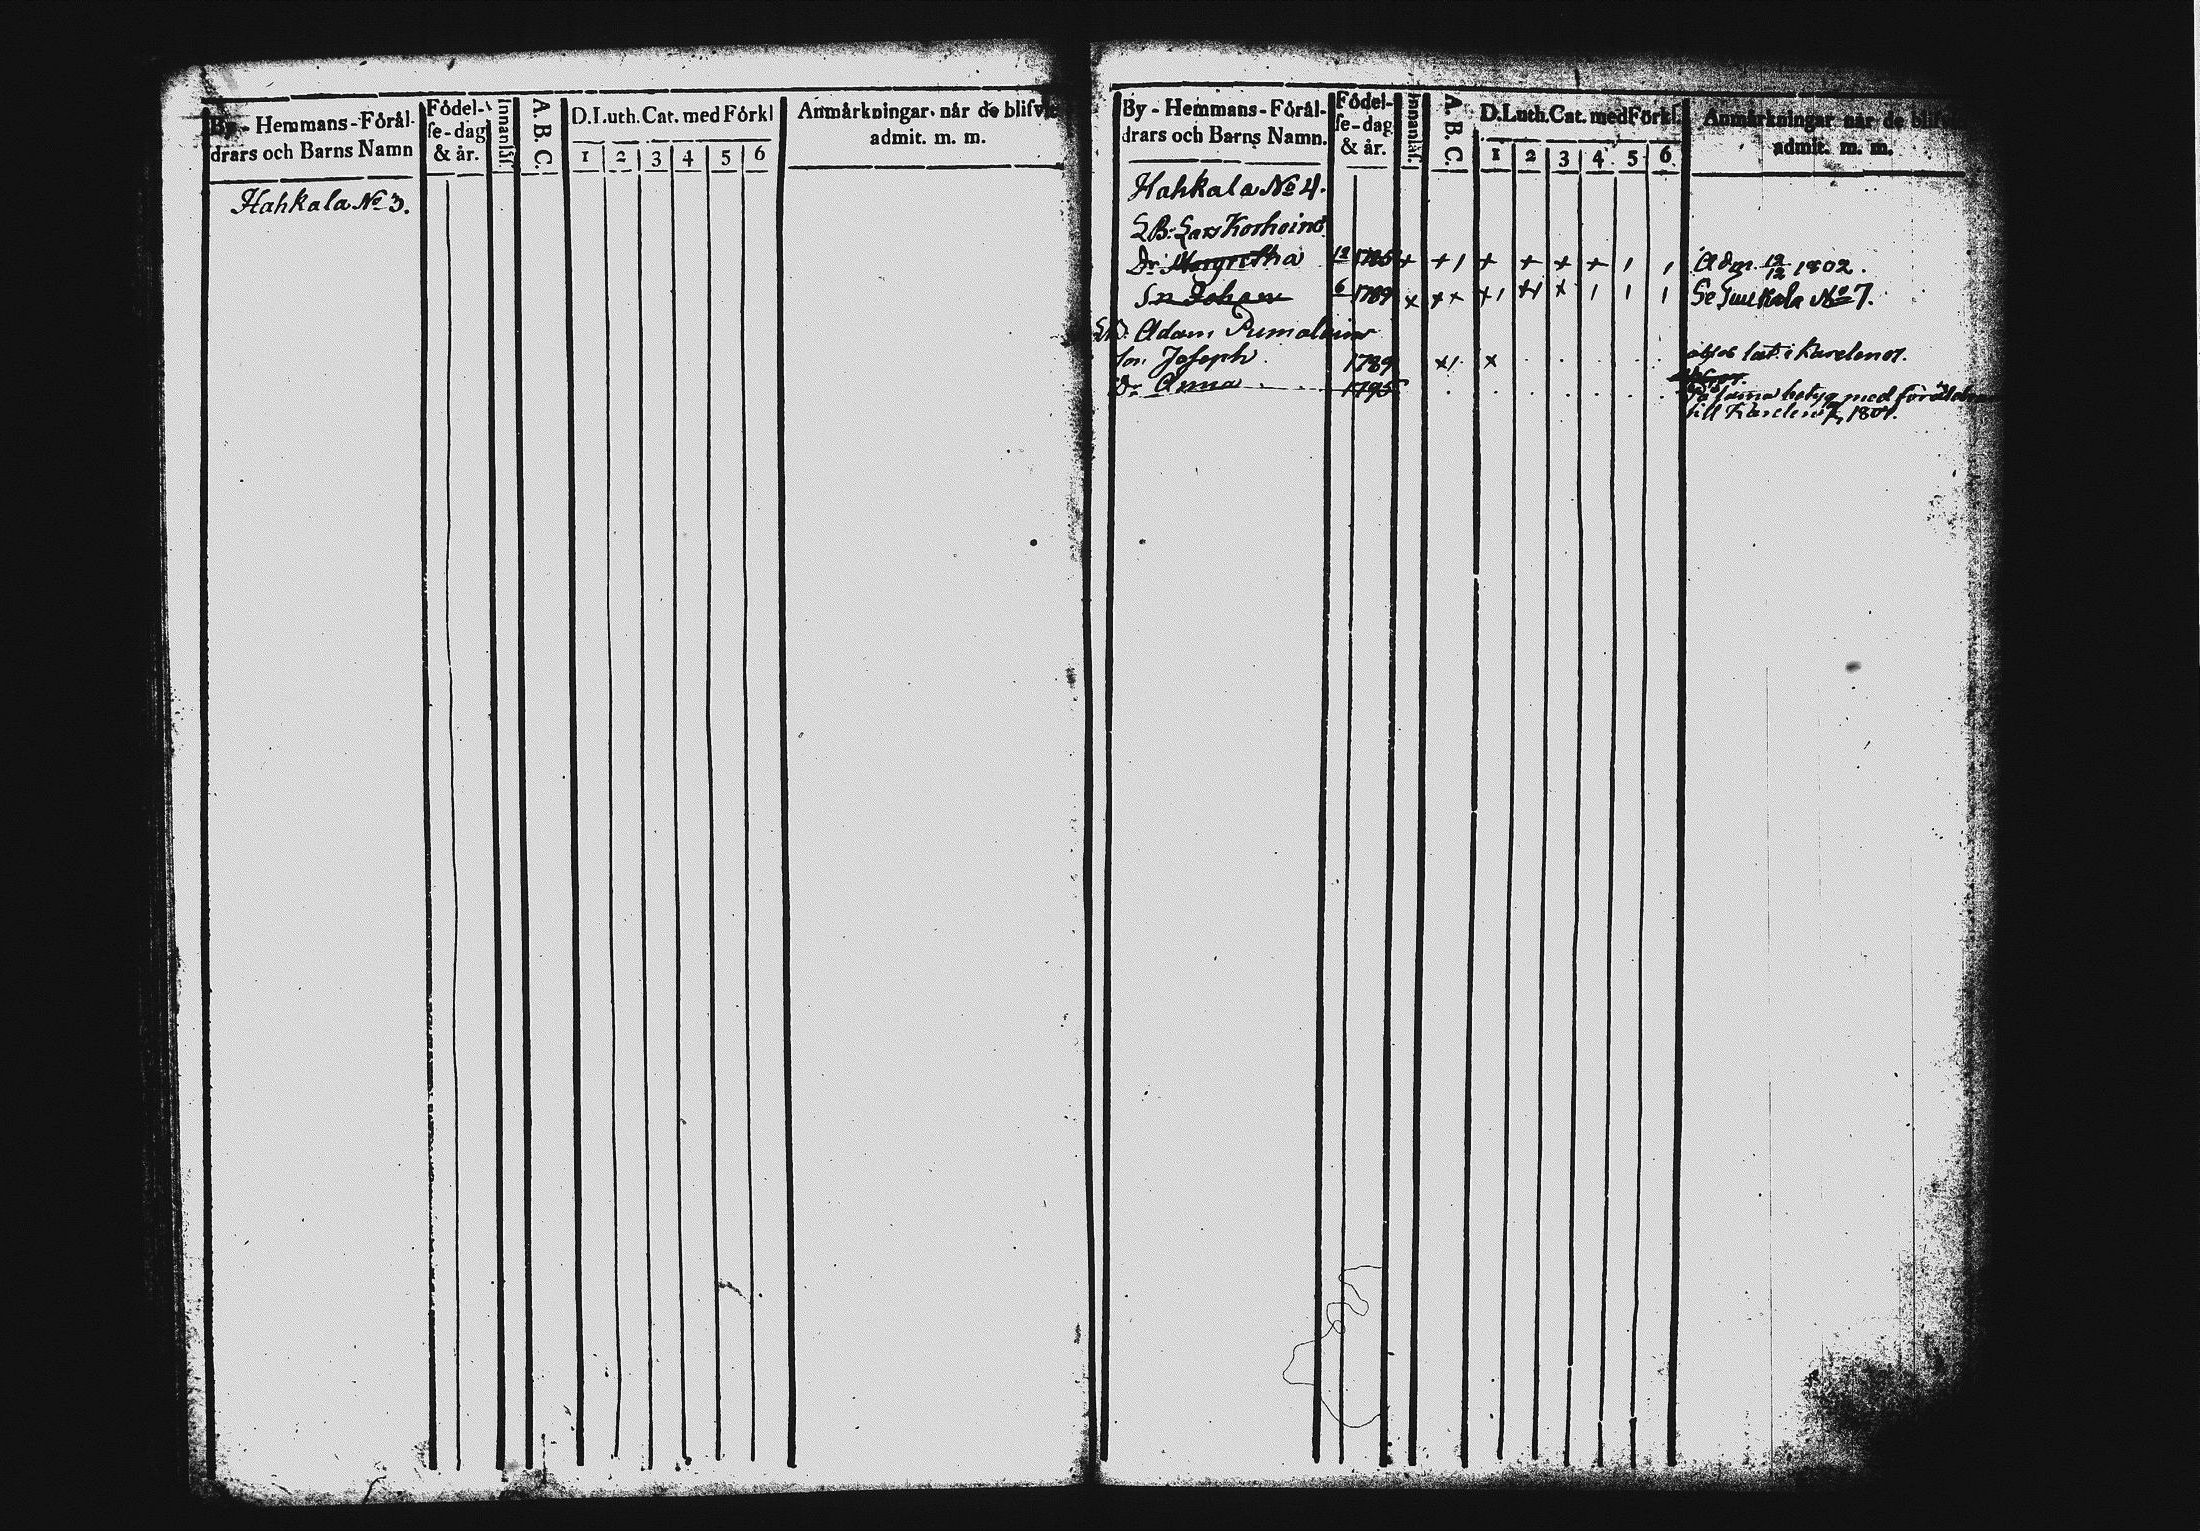 By - Hemmans - Förål-
drars och Barns Namn
Födel-
se-dag
& år.
Innanläs.
A. B. C.
D. Luth. Cat. med Förkl
1 2 3 4 5 6
Anmårkningar, når de blifvit
admit. m. m.
Hahkala No 3.
By - Hemmans - Förål-
drars och Barns Namn.
Födel-
se-dag
& år.
Innanläs.
A. B. C.
D. Luth. Cat. med Förkl.
1 2 3 4 5 6
Anmårkningar når de blifvit
admit. m. m.
Hahkala No 4.
SB: Lars
Dr Margretha 1785 x x 1 x x x x 1 1 Adm. 12/12 1802.
Sn Johan 6 1789 x x x x 1 x 1 x 1 1 1 Se No 7.
Adam
Son Joseph 1789 x 1 x i Karelen 01.
Dr Anna 1795
med föräldrar
till Karelen 1801.